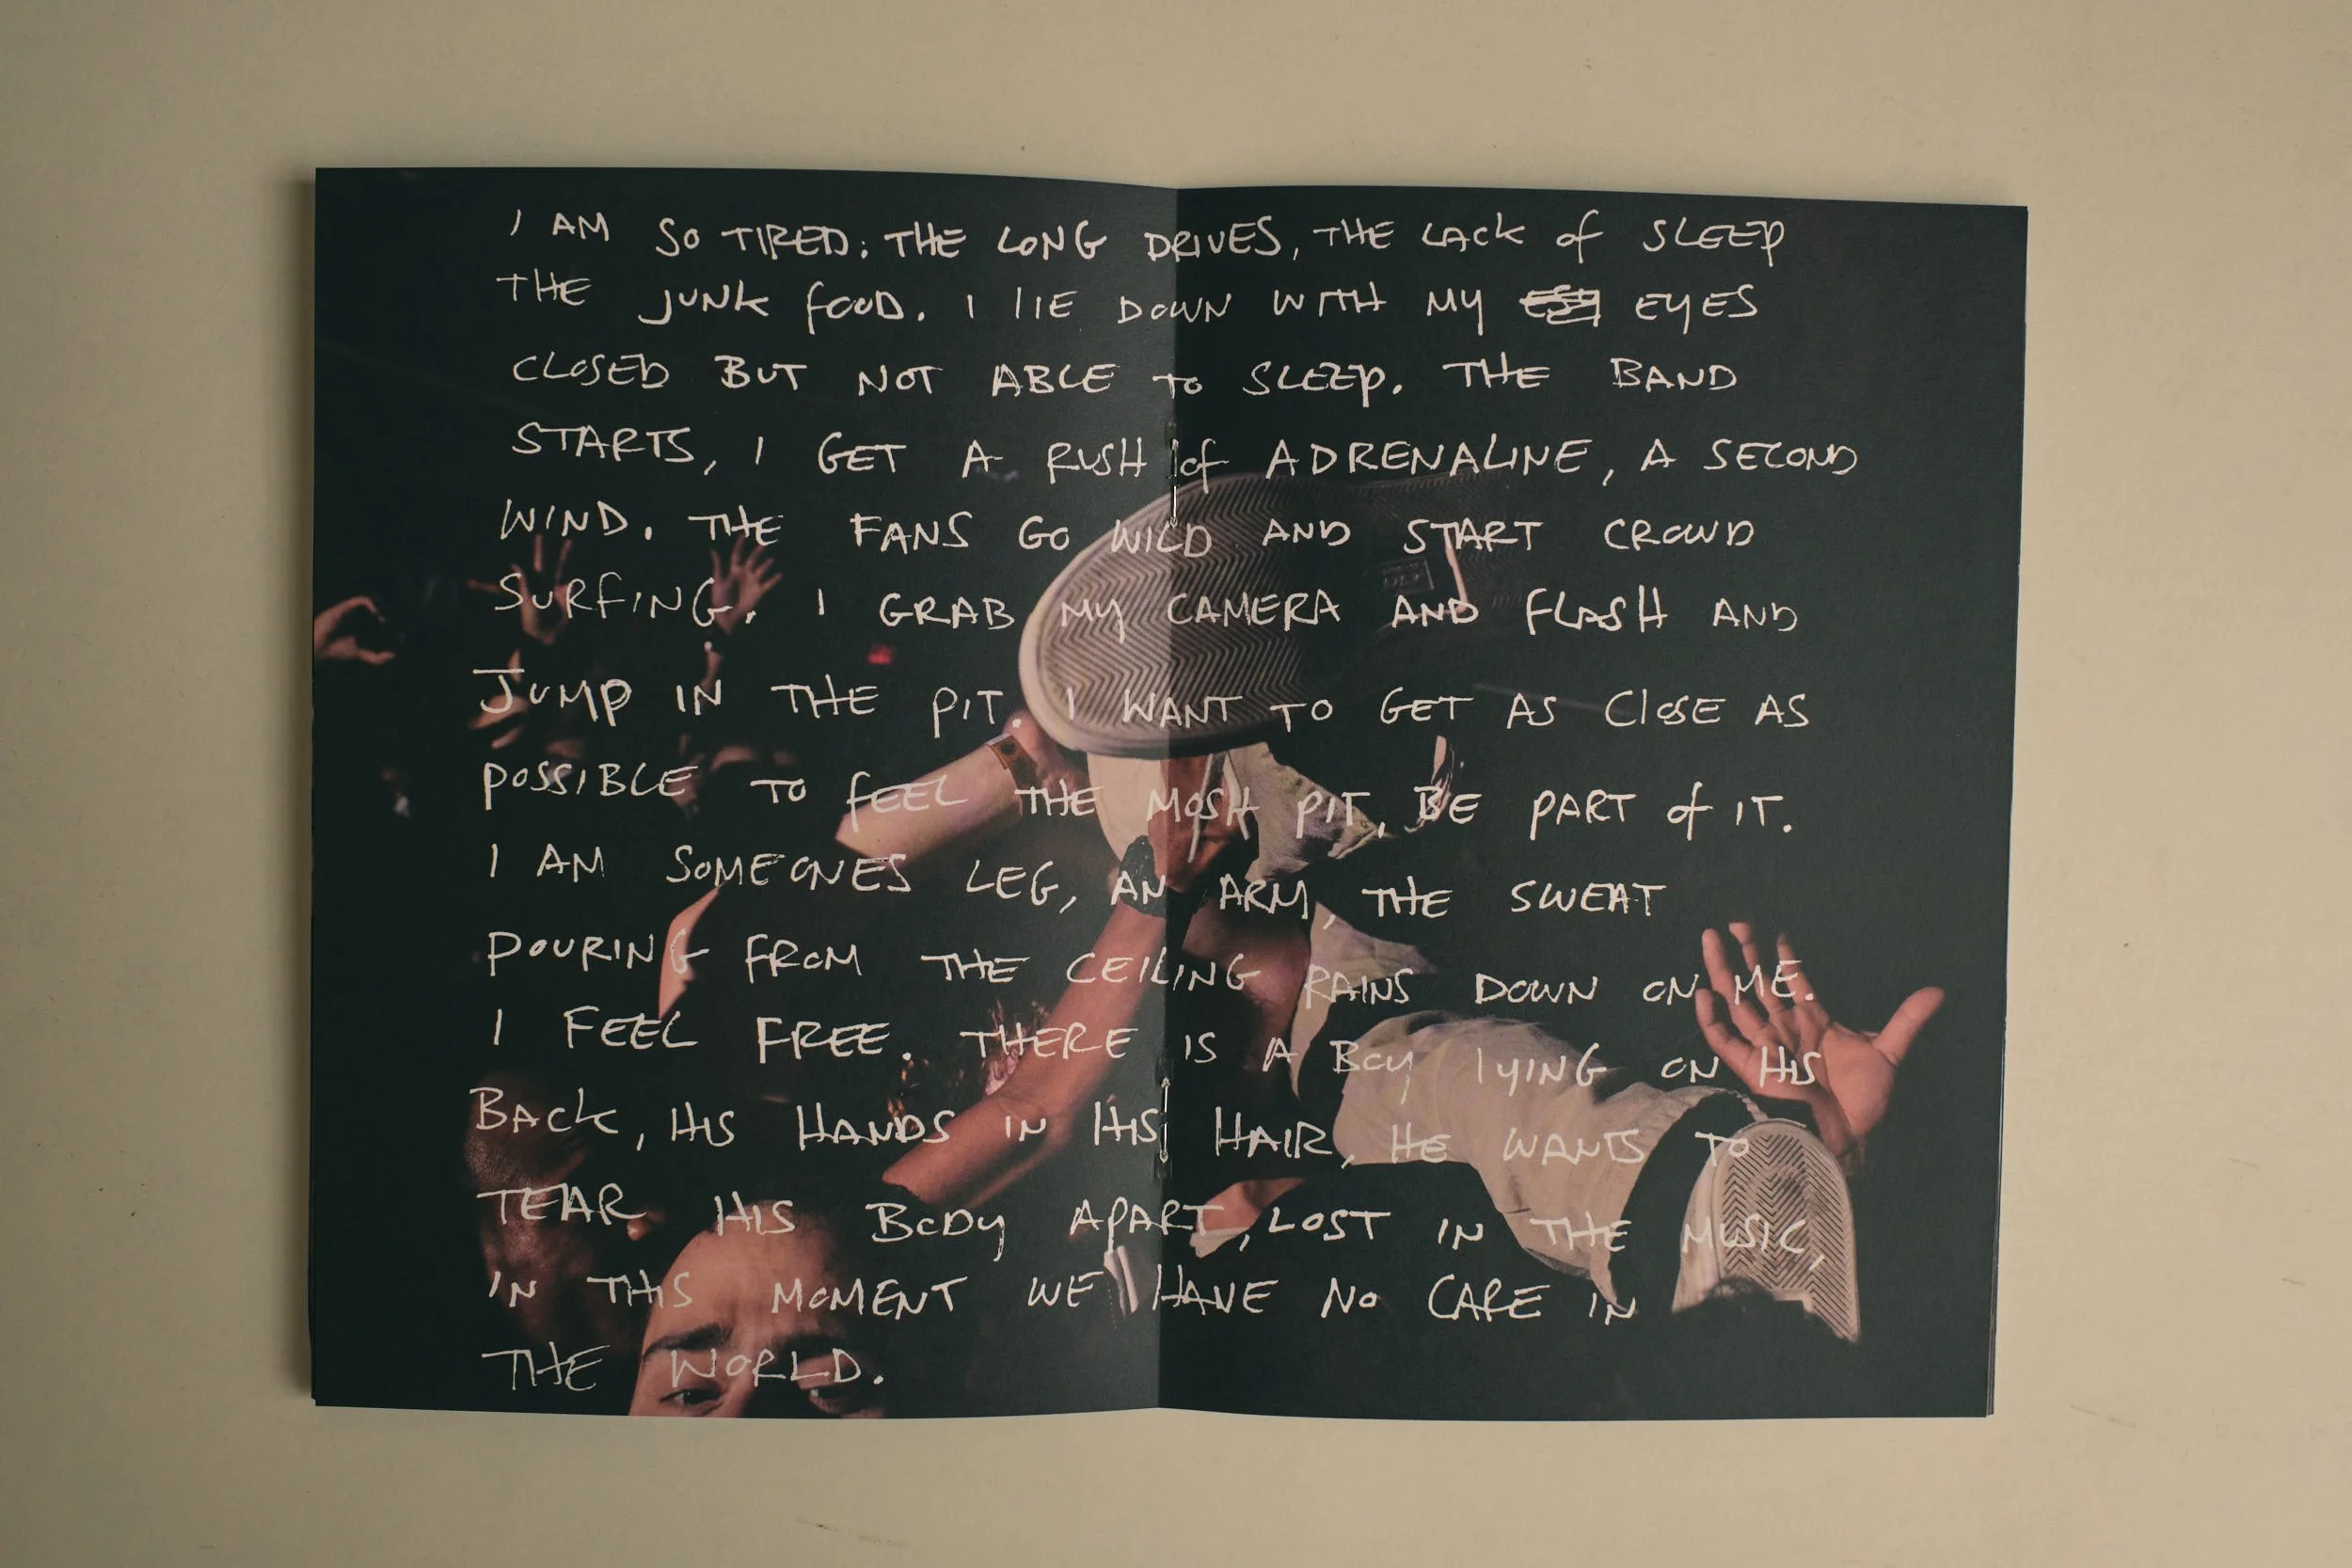 I AM SO TIRED: THE LONG DRIVES, THE LACK OF SLEEP
THE JUNK FOOD. I LIE DOWN WITH MY EYES
CLOSED BUT NOT ABLE TO SLEEP. THE BAND
STARTS, I GET A RUSH OF ADRENALINE, A SECOND
WIND. THE FANS GO WILD AND START CROWD
SURFING. I GRAB MY CAMERA AND FLASH AND
JUMP IN THE PIT. I WANT TO GET AS CLOSE AS
POSSIBLE TO FEEL THE MOSH PIT, BE PART OF IT.
I AM SOMEONES LEG, AN ARM, THE SWEAT
POURING FROM THE CEILING RAINS DOWN ON ME.
I FEEL FREE. THERE IS A BOY LYING ON HIS
BACK, HIS HANDS IN HIS HAIR, HE WANTS TO
TEAR HIS BODY APART, LOST IN THE MUSIC,
IN THIS MOMENT WE HAVE NO CARE IN
THE WORLD.